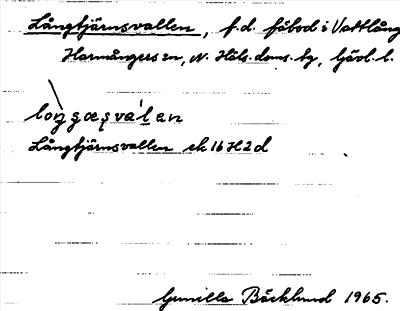 Långtjärnsvallen, f.d. fäbod i Vattlång
Harmångers sn, N. Häls. doms. tg, Gävl. l.
Långtjärnsvallen ek 16H2d
Gunilla Bäcklund 1965.